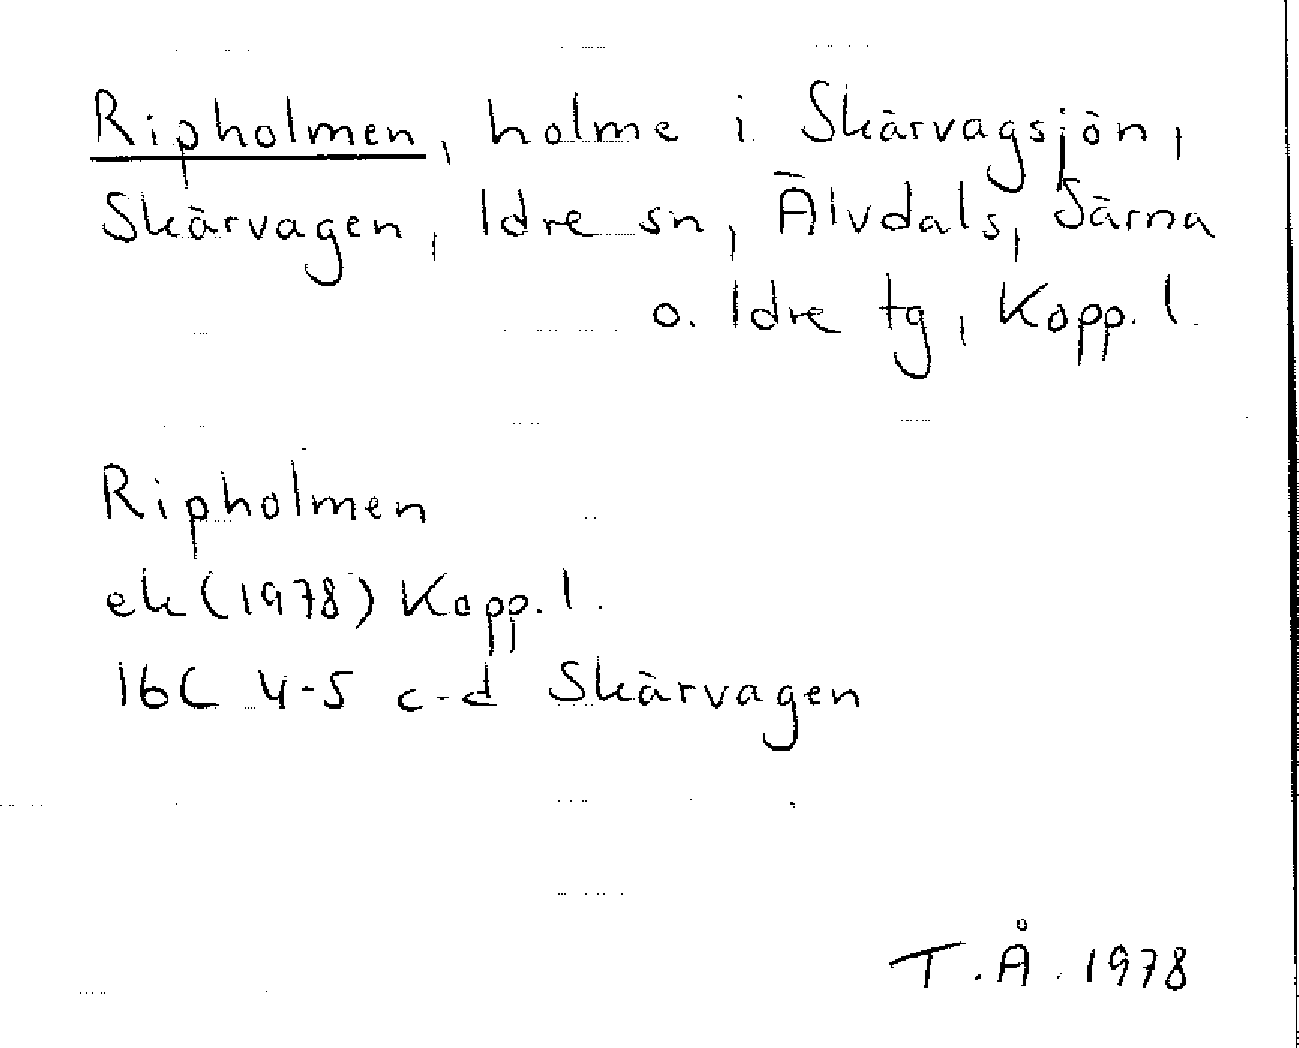 Ripholmen, holme i Skärvagsjön,
Skärvagen, Idre sn, Älvdals, Särna
o. Idre tg, Kopp. l.
Ripholmen
ek (1978) Kopp. l.
16C 4-5 c-d Skärvagen
T.Å. 1978